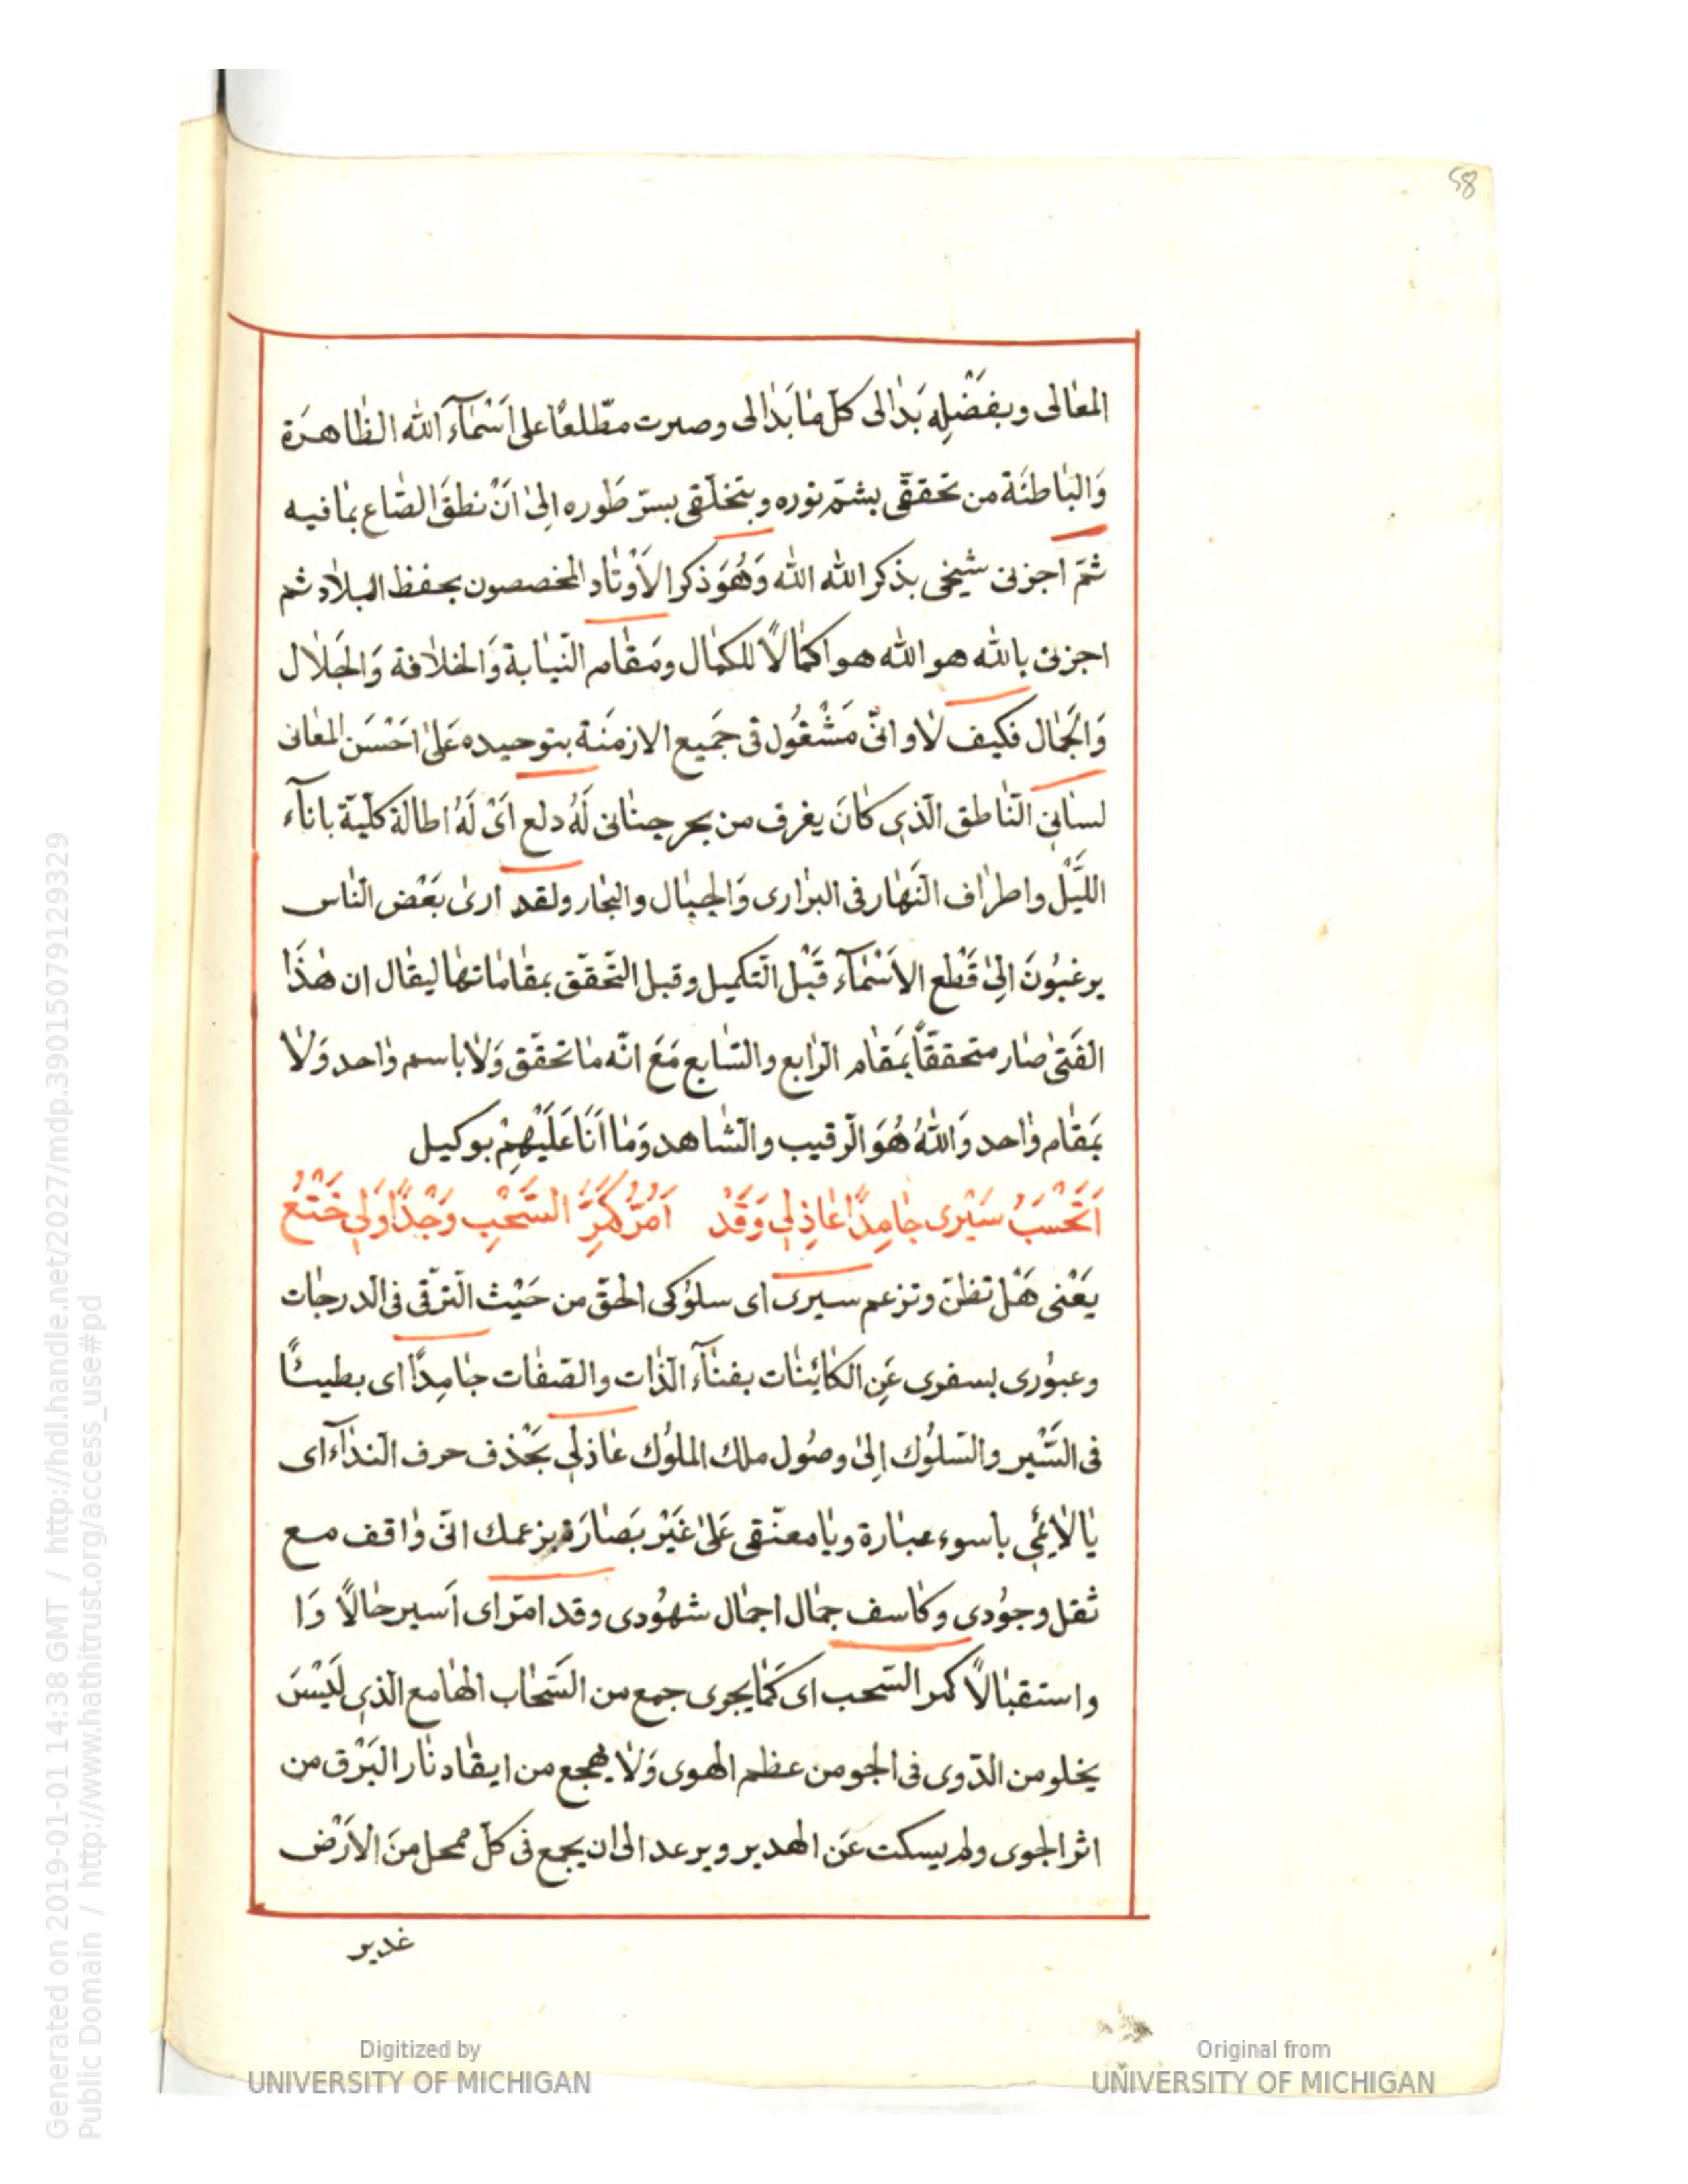 58
المعالى وبفضله بدالى كل ما بدالى وصرت مطّلعًا على اَسْمآء الله الظاهرة
وَالباطنَة من تحققّى بشمّ نوره وبتخلّقى بسرّ طَوره اِلىٰ اَنْ نطقَ الصّاع بمافيه
ثمّ اجزنى شيخى بذكر الله الله وَهُوَ ذكر الاَوْتاد المخصصون بحفظ البلاد ثم
اجزنى بالله هو الله هو اكمالاً للكمال ومَقام النّيابة وَالخلافة وَالجَلال
وَالجَمال فكيف لا وانّى مَشْغُول فى جَميع الازمنَة بتوحيده عَلىٰ اَحْسَن المعانى
لسانى النّاطق الّذى كانَ يغرف من بحر جنانى لَهُ دلع اَىْ لَهُ اطالة كلّيّة باناَء
اللّيْل واطراف النّهار فى البرارى وَالجبال والبحار ولقد ارىٰ بَعْض النّاس
يرغبُونَ اِلىٰ قَطع الاَسْمآء قَبْل التّكميل وقبل التّحقّق بمقاماتها ليقال ان هٰذَا
الفَتىٰ صار متحققّاً بمَقام الرّابع والسّابع مَعَ انّه ما تحقّق وَلا باسم واحد وَلا
بمَقام واحد وَاللهُ هُوَ الرّقيب والشّاهد وَما اَنَا عَلَيْهِمْ بوكيل
اَتَحْسَبُ سَيْرى جامِدًا عاذِلِى وَقَدْ اَمُرُّ كَمَرِّ السَّحْبِ وَجْدًا وَلِى خَتْعُ
يَعْنى هَلْ تظنّ وتزعم سيرى اى سلوُكى الحقّ من حَيْث التّرقّى فى الدرجات
وعبوُرى بسفرى عَنِ الكائنات بفنآء الذّات والصّفات جامِدًا اى بطيئًا
فى السَّيْر والسّلوُك اِلىٰ وصُول ملك الملوُك عاذلى بحَذف حرف النداء اى
يا لائمى باسوء عبارة ويا معنّفى عَلىٰ غَيْر بَصارَة بزعمك انّى واقف مع
ثقل وجوُدى وكاسف جمال اجمال شهوُدى وقد امرّ اى اَسير حالاً وَا
واستقبالاً كمر السّحب اى كَما يجرى جمع من السَّحاب الهامع الّذى لَيْسَ
يخلو من الدّوى فى الجو من عظم الهوى وَلا يهجع من ايقاد نار البَرْق من
اثر الجوى ولم يسكت عَن الهدير ويرعد الى ان يجمع فى كلّ ممحل منَ الاَرْض
غدير
Generated on 2019-01-01 14:38 GMT / http://hdl.handle.net/2027/mdp.39015079129329
Public Domain / http://www.hathitrust.org/access_use#pd
Digitized by
UNIVERSITY OF MICHIGAN
Original from
UNIVERSITY OF MICHIGAN